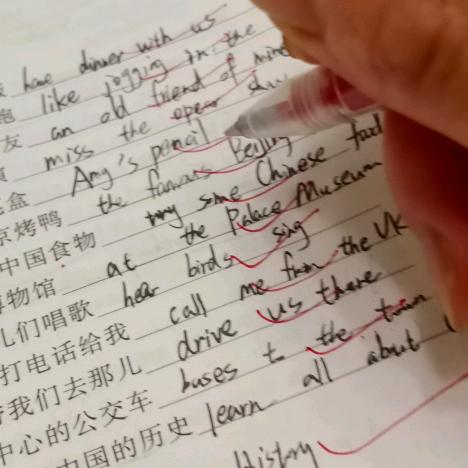 have dinner with us
跑 like jogging in the
友 an old friend of mine
miss the opera
盒 Amy's pencil
京烤鸭 the famous Beijing
中国食物 try some Chinese food
博物馆 at the Palace Museum
儿们唱歌 hear birds sing
打电话给我 call me from the UK
我们去那儿 drive us there
中心的公交车 buses to the town
中国的历史 learn all about
History